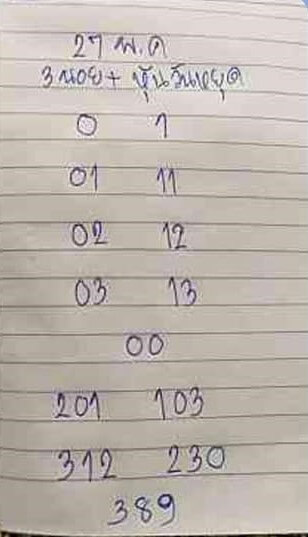 27 พ.ค
3นอย+ หุ้นวันหยุด
0 1
01 11
02 12
03 13
00
201 103
312 230
389